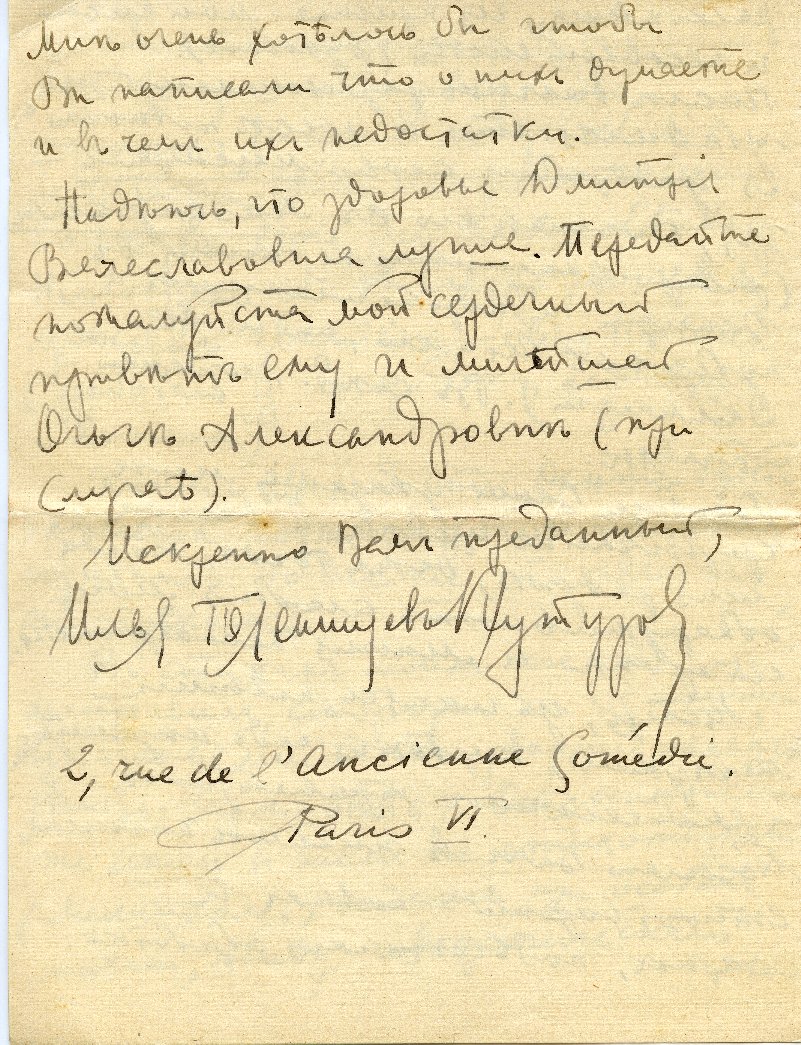 Мнѣ очень хотѣлось бы чтобы
Вы написали что о нихъ думаете
и въ чемъ ихъ недостатки.
Надѣюсь, что здоровье Дмитрія
Вячеславовича лучше. Передайте
пожалуйста мой сердечный
привѣтъ ему и милѣйшей
Ольгѣ Александровнѣ (при
случаѣ).
Искренно Вамъ преданный,
Илья Голенищевъ Кутузов
2, rue de l'Ancienne Comédie.
Paris VI.